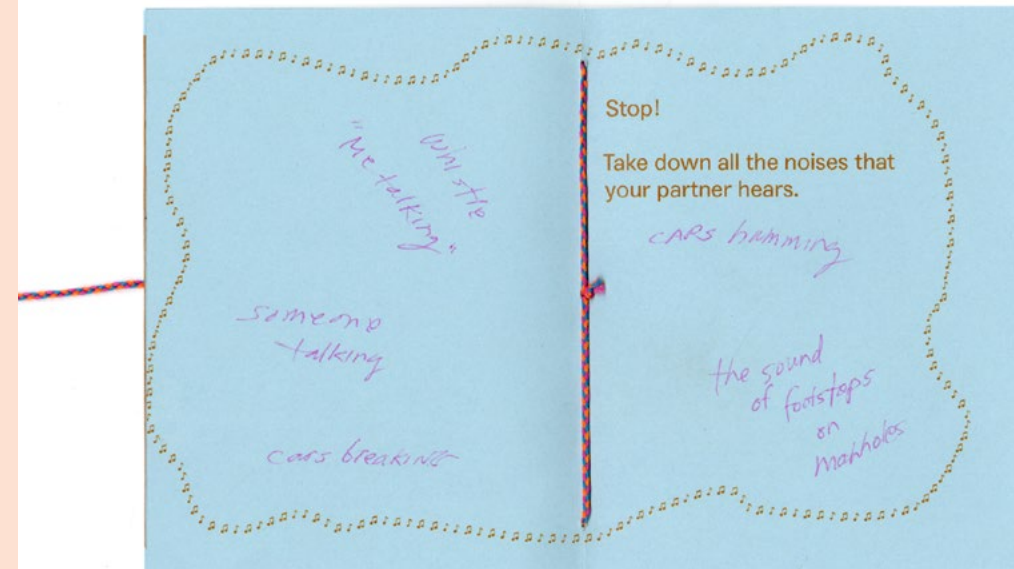 whistle
"Me talking"
someone
talking
cars breaking
Stop!
Take down all the noises that
your partner hears.
CARS humming
the sound
of footsteps
on
manholes